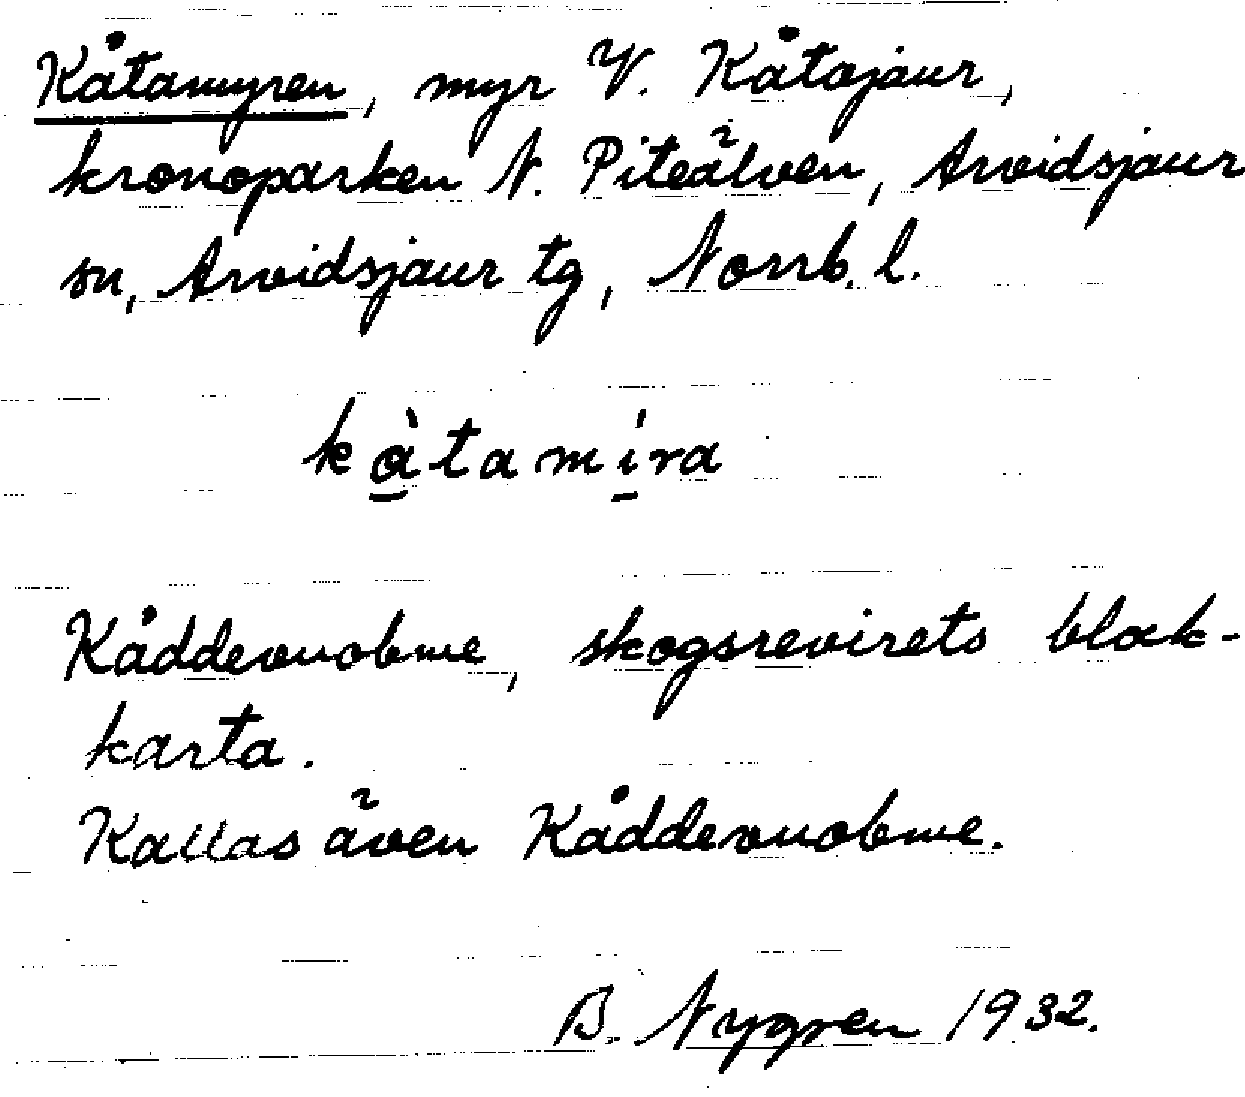 Kåtamyren, myr V. Kåtajaur,
kronoparken N. Piteälven, Arvidsjaur
sn, Arvidsjaur tg, Norrb. l.
kàtamíra
Kåddevuobme, skogsrevirets block-
karta.
Kallas även Kåddevuobme.
B. Nygren 1932.